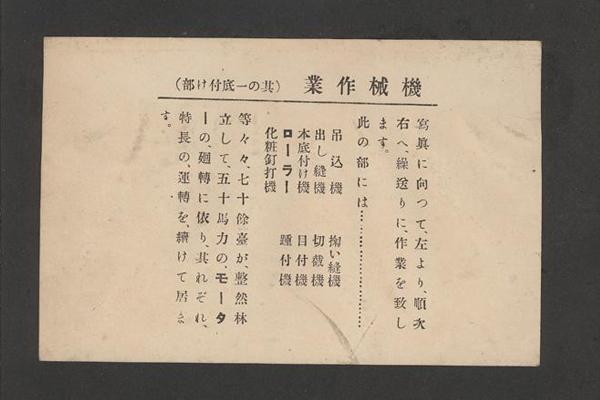 機械作業（其の一底付け部）
寫眞に向つて、左より、順次
右へ、繰送りに、作業を致し
ます。
此の部には……………………
吊込機　掬い縫機
出し縫機　切截機
本底付け機　目付機
ローラー　踵付機
化粧釘打機
等々々、七十餘臺が、整然林
立して、五十馬力の、モータ
ーの、廻轉に依り、其れぞれ、
特長の、運轉を、續けて居ま
す。